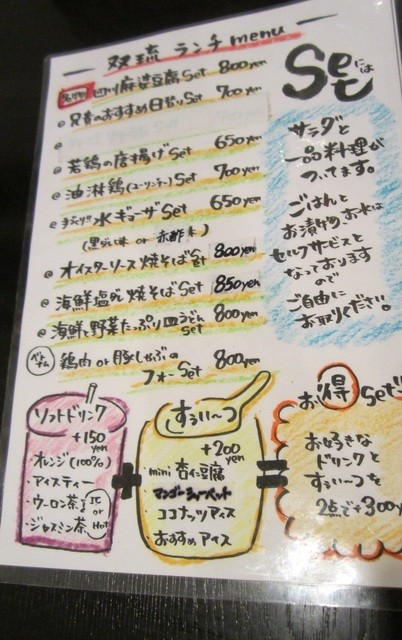 双琉 ランチmenu
名物 四川麻婆豆腐 Set 800yen
兄貴のおすすめ日替り Set 700yen
若鶏の唐揚げ Set 650yen
油淋鶏(ユーリンチー) Set 700yen
手づくり水ギョーザ Set 650yen
(黒だし味 or 赤酢味)
オイスターソース焼そば Set 800yen
海鮮塩だし焼そば Set 850yen
海鮮と野菜たっぷり皿うどん set 800yen
ベトナム 鶏肉 or 豚しゃぶの
フォー Set 800yen
Set には
サラダと
一品料理が
ついてます。
ごはんと
お漬物、お水は
セルフサービスと
なっております
ので
ご自由に
お取りください。
ソフトドリンク
+150yen
・オレンジ(100%)
・アイスティー
・ウーロン茶
・ジャスミン茶
ICE or Hot
+
すうぃ〜つ
+200yen
mini 杏仁豆腐
マンゴーシャーベット
ココナッツアイス
おすすめアイス
=
お得Set
お好きな
ドリンクと
すうぃ〜つを
2点で+300y